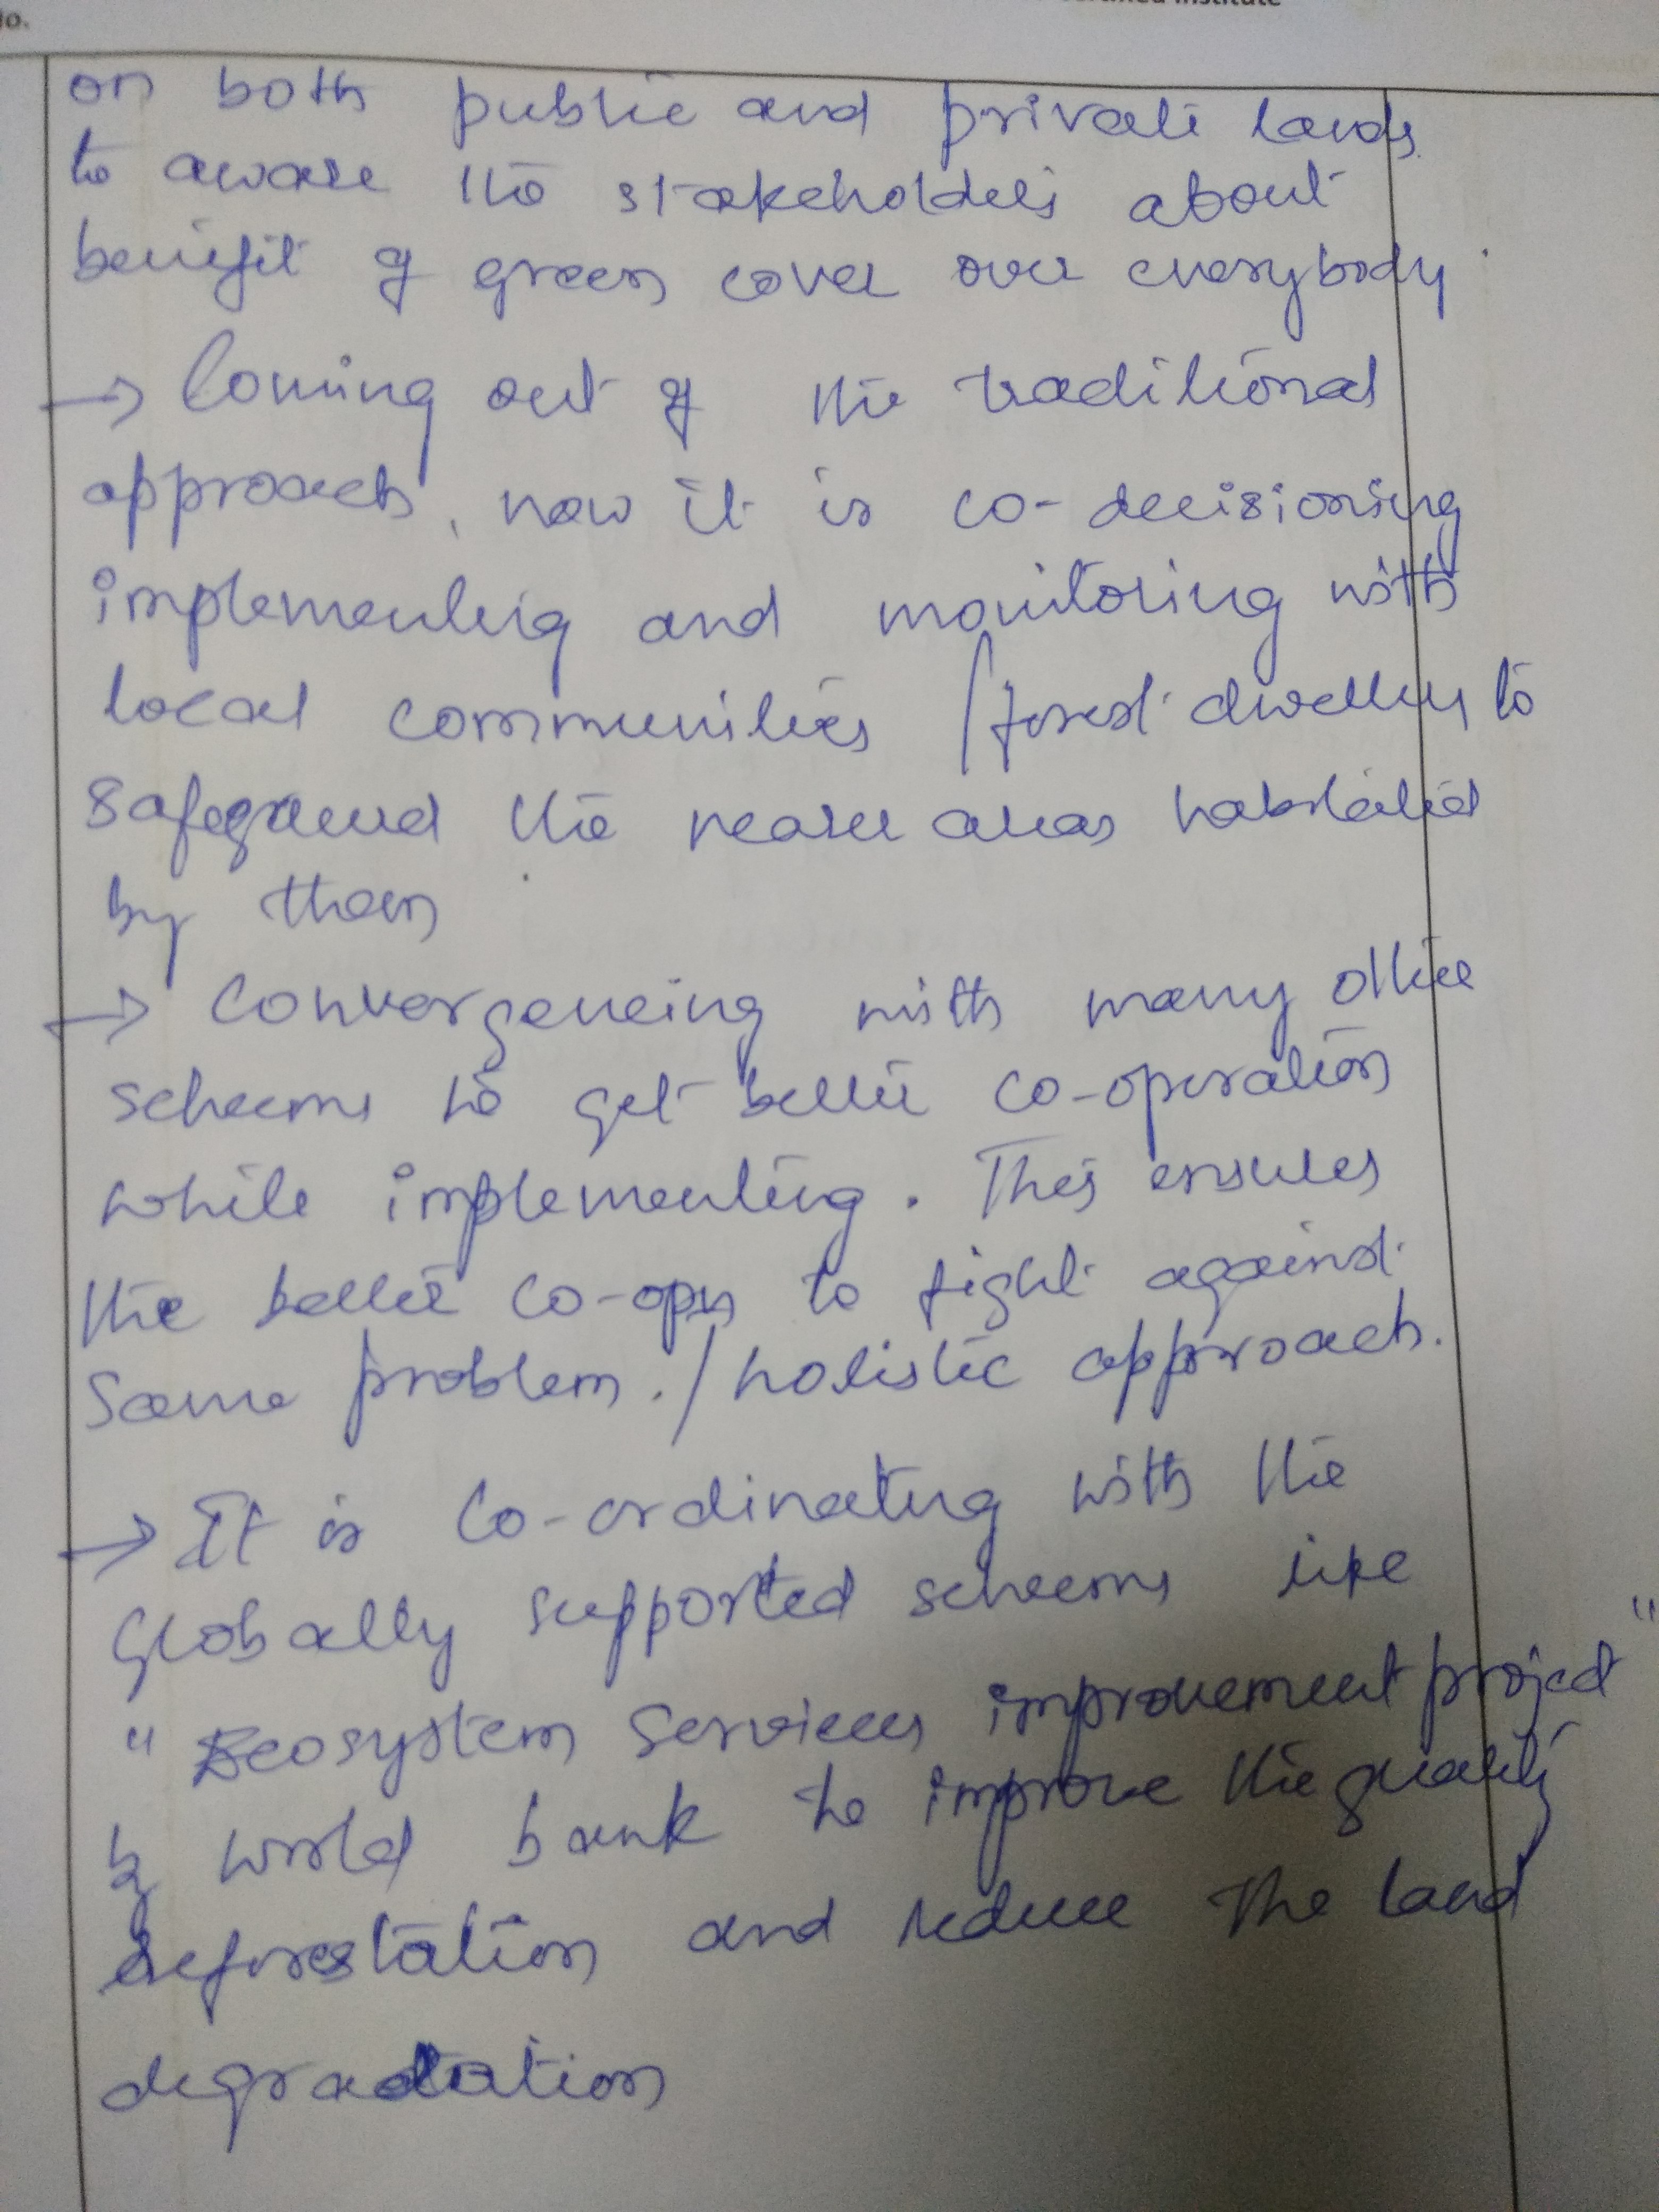 Certified Institute
on both public and private lands
to aware the stakeholders about
benefit of green cover over everybody.
→ Coming out of the traditional
approach, now it is co-decisioning
implementing and monitoring with
local communities / forest dwellers to
safeguard the nearer areas habitated
by them
→ Convergenceing with many other
scheems to get better co-operation
while implementing. This ensures
the better co-opn to fight against
same problem. / holistic approach.
→ It is Co-ordinating with the
globally supported scheems like
"Ecosystem Services improvement project"
by world bank to improve the quality
deforestation and reduce the land
degradation